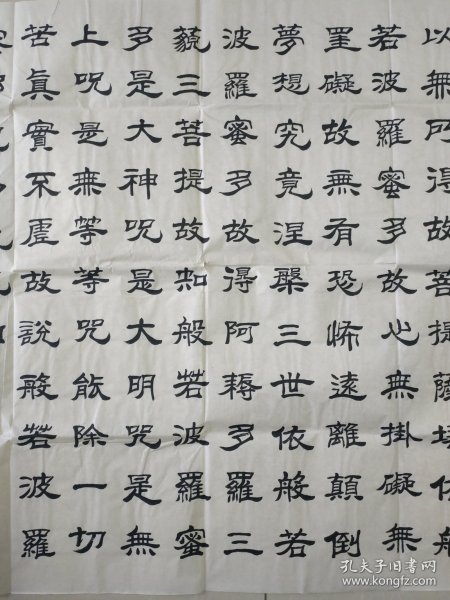 以無所得故菩提薩埵依般
若波羅蜜多故心無掛礙無
罣礙故無有恐怖遠離顛倒
夢想究竟涅槃三世依般若
波羅蜜多故得阿耨多羅三
藐三菩提故知般若波羅蜜
多是大神呪是大明咒是無
上呪是無等等呪能除一切
苦眞實不虛故說般若波羅
孔夫子旧书网
www.kongfz.com